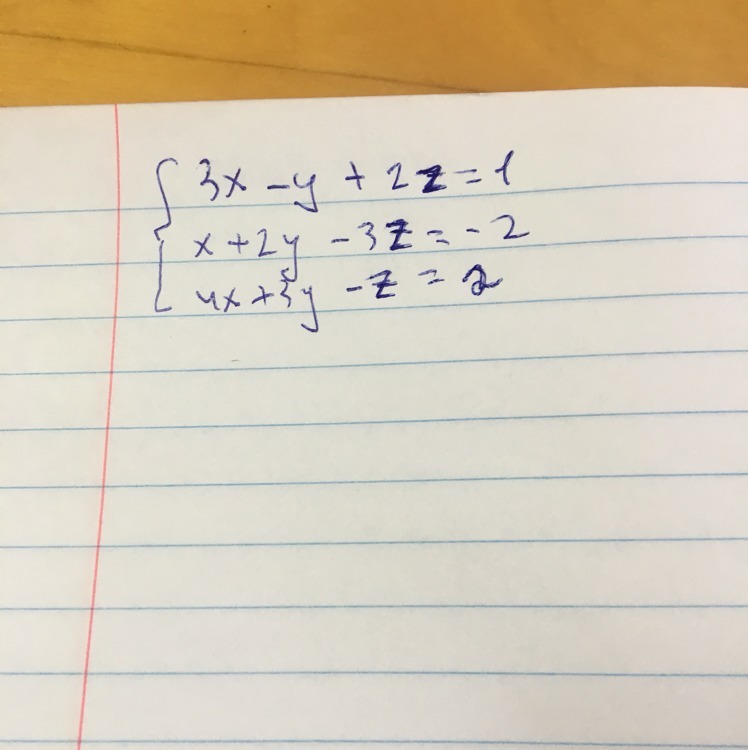 3x - y + 2z = 1
x + 2y - 3z = - 2
4x + 3y - z = 2